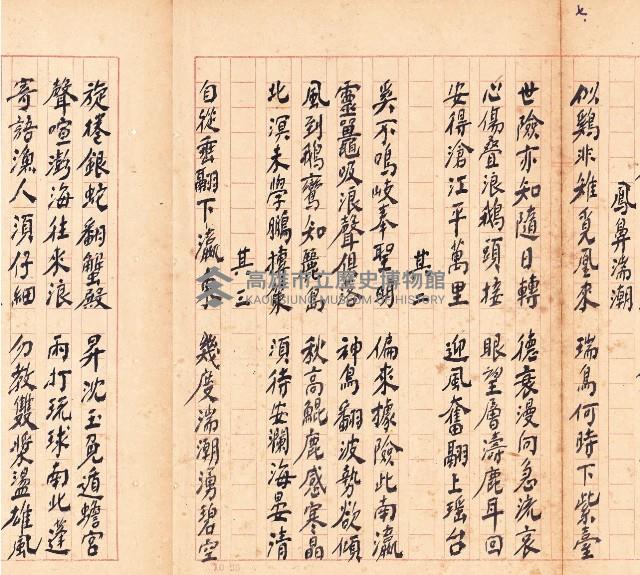 七、
鳳鼻湍潮
似鷄非雉覓凰來 瑞鳥何時下紫臺
世險亦知隨日轉 德衰漫向急流哀
心傷疊浪鵝頭接 眼望層濤鹿耳回
安得滄江平萬里 迎風奮翮上瑶台
其二
奚不鳴岐奉聖明 偏來據險此南瀛
靈鼍吸浪聲俱 神鳥翻波勢欲傾
風到鵝鸞知麗島 秋高鯤鹿感寒晶
北溟未學鵬摶 須待安瀾海晏清
其三
自從垂翮下瀛 幾度湍潮湧碧空
旋捲銀蛇翻蟹殿 昇沈玉兔遁蟾宮
聲喧澎海往來浪 雨打琉球南北蓬
寄語漁人須仔細 勿教雙槳盪雄風
高雄市立歷史博物館
KAOHSIUNG MUSEUM OF HISTORY